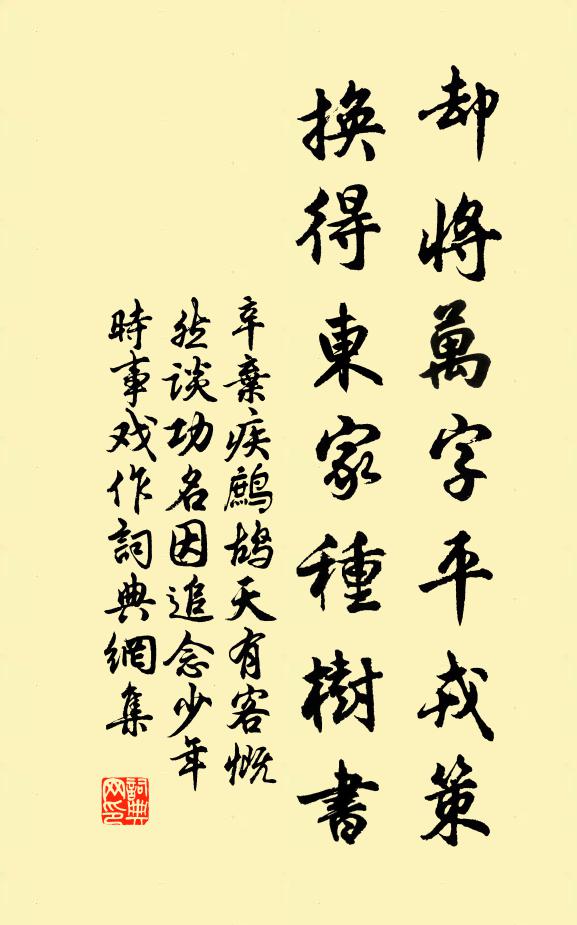 却將萬字平戎策
換得東家種樹書
辛棄疾鷓鴣天有客慨
然談功名因追念少年
時事戏作詞典網集
詞典
网印